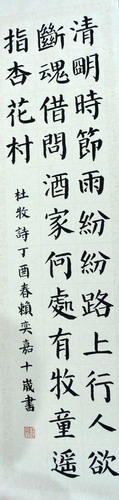 清朙時節雨紛紛路上行人欲
斷魂借問酒家何處有牧童遥
指杏花村
杜牧詩丁酉春賴奕嘉十歲書